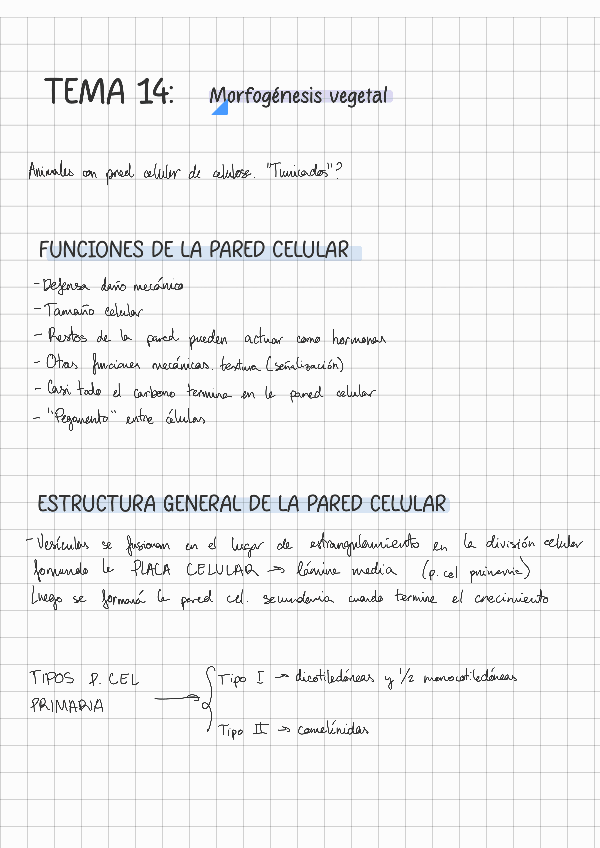 TEMA 14: Morfogénesis vegetal
Animales con pared celular de celulosa. "Tunicados"?
FUNCIONES DE LA PARED CELULAR
- Defensa daño mecánico
- Tamaño celular
- Restos de la pared pueden actuar como hormonas
- Otras funciones mecánicas. textura (señalización)
- Casi todo el carbono termina en la pared celular
- "Pegamento" entre células
ESTRUCTURA GENERAL DE LA PARED CELULAR
- Vesículas se fusionan en el lugar de estrangulamiento en la división celular
formando la PLACA CELULAR → lámina media (p. cel primaria)
Luego se formará la pared cel. secundaria cuando termine el crecimiento
TIPOS P. CEL
PRIMARIA →
Tipo I → dicotiledóneas y 1/2 monocotiledóneas
Tipo II → comelínidas